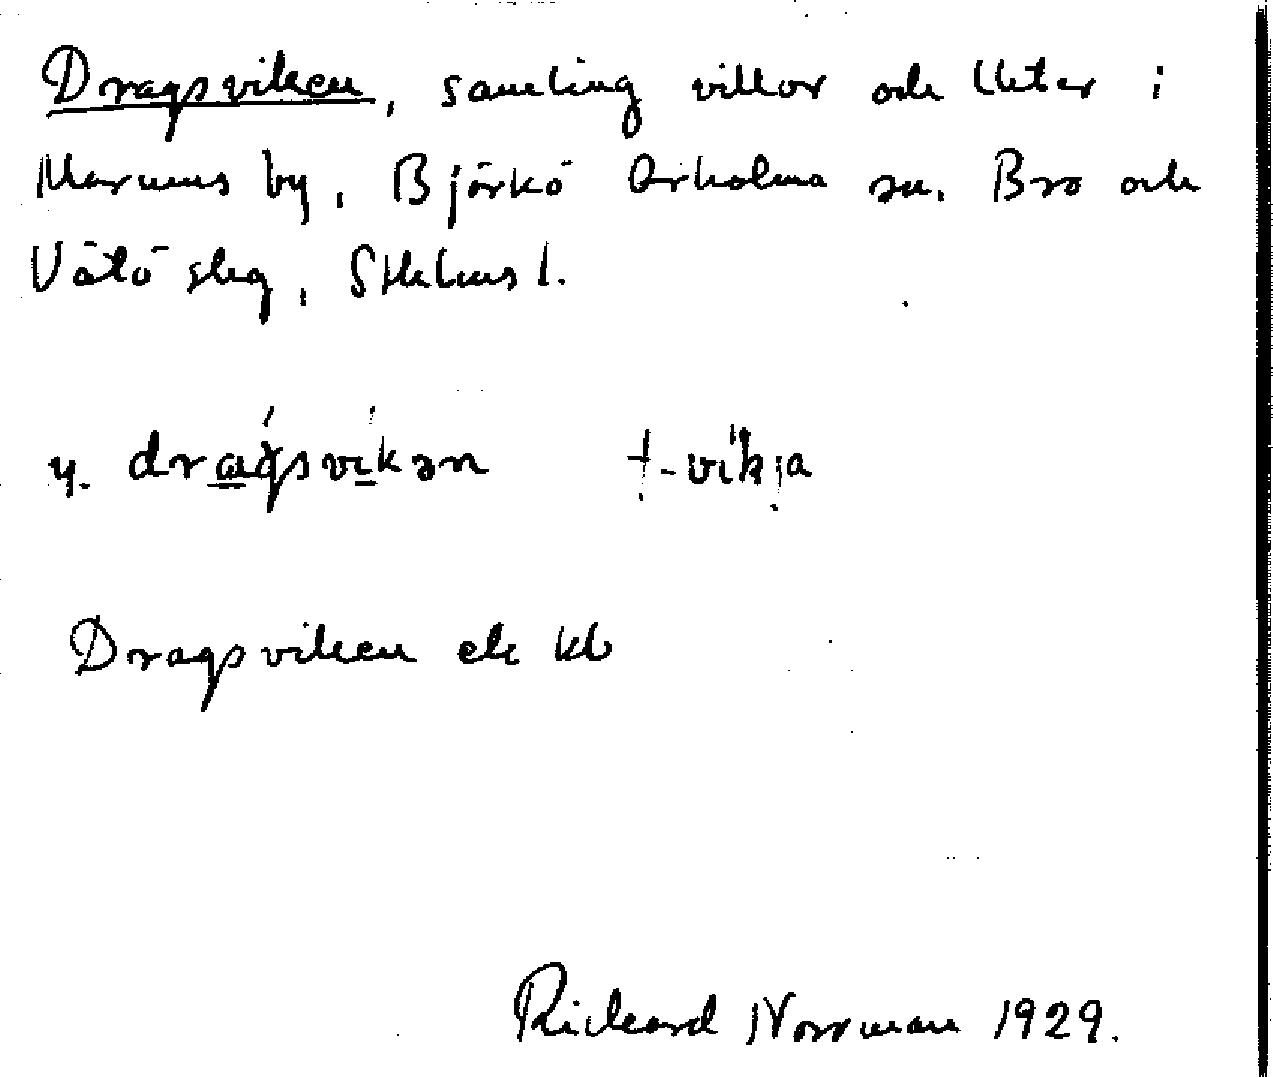 Dragsviken, samling villor och tomter i
Marums by, Björkö Arholma sn. Bro och
Vätö skg, Sthlms l.
y. dragsvikən †-vikja
Dragsviken ek kb
Rickard Norrman 1929.